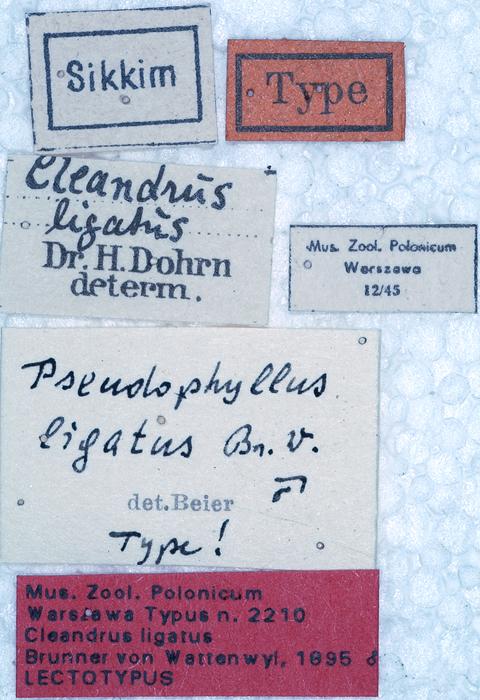 Sikkim
Type
Cleandrus
ligatus
Dr. H. Dohrn
determ.
Mus. Zool. Polonicum
Warszawa
12/45
Pseudophyllus
ligatus Br. v.
det. Beier
Type!
Mus. Zool. Polonicum
Warszawa Typus n. 2210
Cleandrus ligatus
Brunner von Wattenwyl, 1895 ♂
LECTOTYPUS